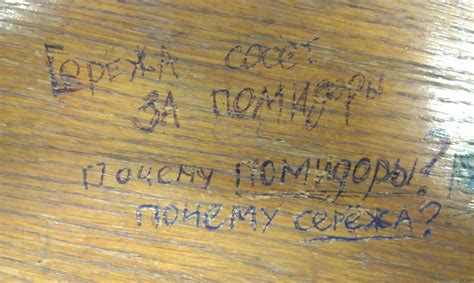 Сережа сосет
за помидоры
Почему помидоры?
почему сережа?